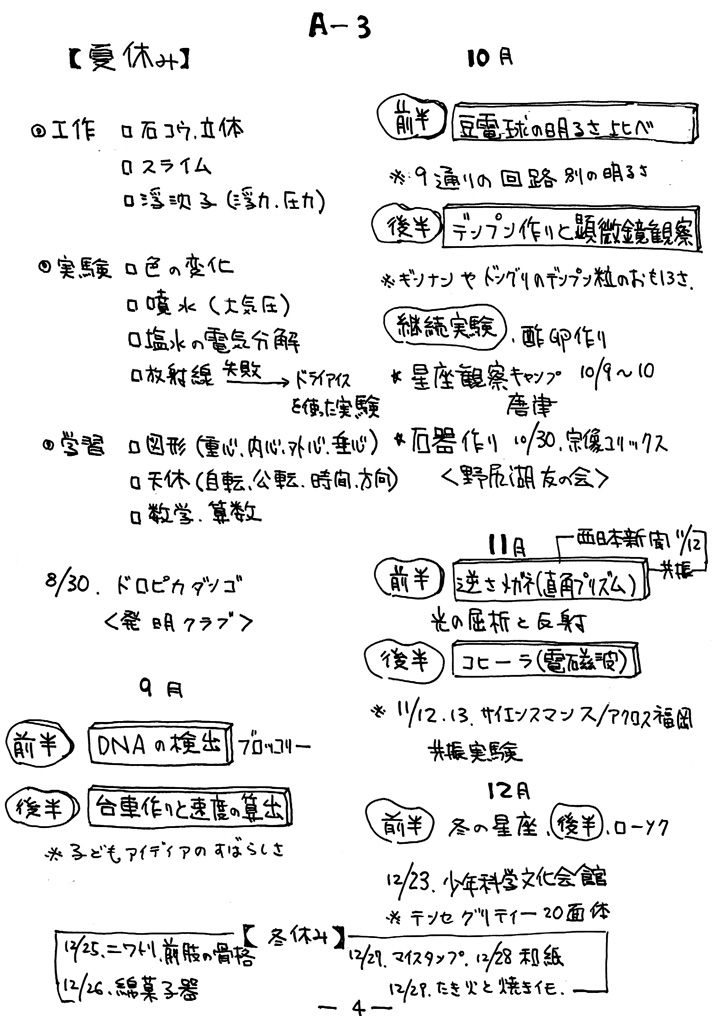 A-3
【夏休み】
◎工作 □石コウ.立体
□スライム
□浮沈子(浮力.圧力)
◎実験 □色の変化
□噴水(大気圧)
□塩水の電気分解
□放射線 失敗→ドライアイス
を使った実験
◎学習 □図形(重心、内心、外心、垂心)
□天体(自転、公転、時間、方向)
□数学.算数
8/30. ドロピカダンゴ
<発明クラブ>
9月
前半 DNAの検出 ブロッコリー
後半 台車作りと速度の算出
※子どもアイディアのすばらしさ
10月
前半 豆電球の明るさ比べ
※9通りの回路別の明るさ
後半 デンプン作りと顕微鏡観察
※ギンナンやドングリのデンプン粒のおもしろさ.
継続実験.酢卵作り
*星座観察キャンプ 10/9~10
唐津
*石器作り 10/30.宗像ユリックス
<野尻湖友の会>
11月
西日本新聞11/12
共振
前半 逆さメガネ(直角プリズム)
光の屈折と反射
後半 コヒーラ(電磁波)
※11/12.13.サイエンスマンス/アクロス福岡
共振実験
12月
前半 冬の星座.後半.ローソク
12/23.少年科学文化会館
※テンセグリティー20面体
【冬休み】
12/25.ニワトリ.前肢の骨格
12/26.綿菓子器
12/27.マイスタンプ.12/28和紙
12/29.たき火と焼きイモ.
-4-